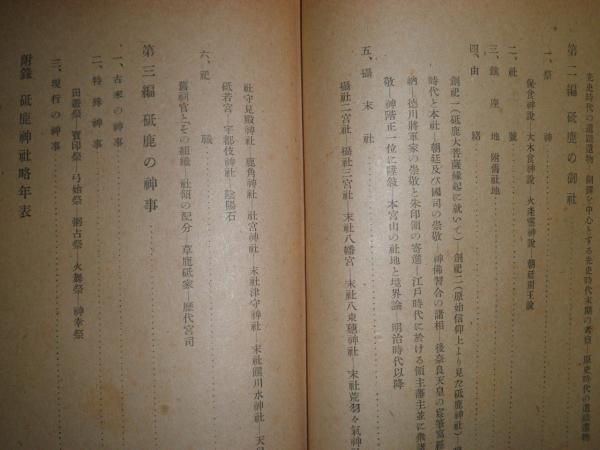 先史時代の遺蹟遺物 銅鐸を中心とする先史時代末期の考察 原史時代の遺蹟遺物
第二編 砥鹿の御社
一、祭神
保食神說 大木食神說 火產靈神說 朝廷別王說
二、社號
三、鎭座地 附舊社地
四、由緖
創祀一(砥鹿大菩薩緣起に就いて)―創祀二(原始信仰上より見た砥鹿神社)
時代と本社―朝廷及び國司の崇敬 神佛習合の諸相 後奈良天皇の宸筆
納―德川將軍家の崇敬と朱印領の寄進―江戶時代に於ける領主藩主並に
敬―神階正一位に陞敍―本宮山の社地と境界論―明治時代以降
五、攝末社
攝社二宮社 攝社三宮社―末社八幡宮―末社八束穗神社―末社荒羽々氣神社
社守見殿神社 鹿角神社―社宮神社―末社津守神社―末社饌川水神社―天
砥若宮―宇都伎神社―陰陽石
六、祀職
舊祠官とその組織―社領の配分 草鹿砥家―歷代宮司
第三編 砥鹿の神事
一、古來の神事
二、特殊神事
田遊祭―寶印祭―弓始祭 粥占祭―火舞祭―神幸祭
三、現行の神事
附錄 砥鹿神社略年表